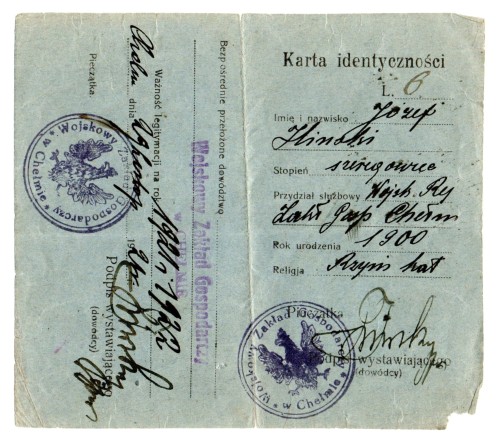 Karta identyczności
L. 6
Imię i nazwisko Józef
Ilinski
Stopień szeregowiec
Przydział służbowy Wojsk. Rej
Zakł Gosp Chełm
Rok urodzenia 1900
Religja Rzym kat
Pieczątka
Podpis wystawiającego
(dowódcy)
Wojskowy Zakład Gospodarczy
* w Chełmie *
Bezpośrednie przełożone dowództwo
Wojskowy Zakład Gospodarczy
w CHEŁMIE
Ważność legitymacji na rok 1921 i 1922
Chełm dnia 192
Pieczątka.
Podpis wystawiającego
(dowódcy)
Wojskowy Zakład Gospodarczy
* w Chełmie *